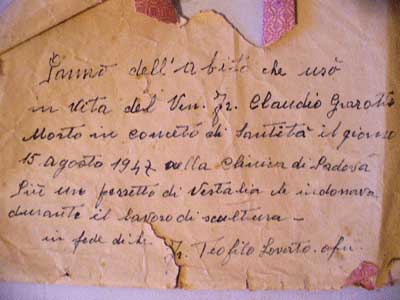 Panno dell'abito che usò
in vita del Ven. Fr. Claudio Granzotto
Morto in concetto di Santità il giorno
15 agosto 1947 nella Clinica di Padova
Più un pezzetto di Vestaglia che indossava
durante il lavoro di scultura -
in fede di
Fr. Teofilo Lovato. ofm.